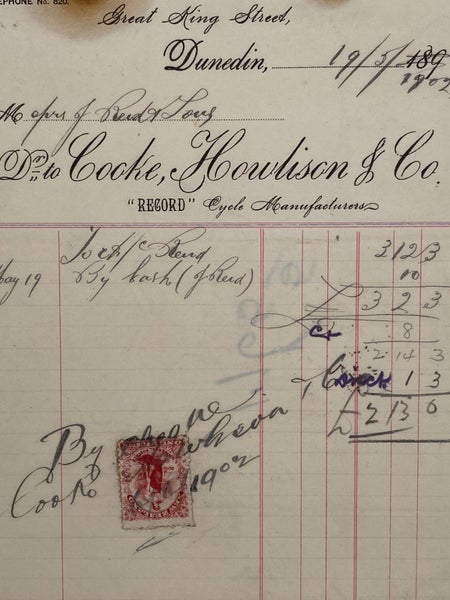 EPHONE No. 820.
Great King Street,
Dunedin, 19/5/189
1902
Messrs J Reid & Sons
Dr. to Cooke, Howlison & Co.
"RECORD" Cycle Manufacturers
To a/c Rend 3 12 3
May 19 By Cash (J Reid) 10
£ 3 2 3
Ct 8
2 14 3
1 3
£ 2 13 0
By Cheque
Cooke Howlison
1902